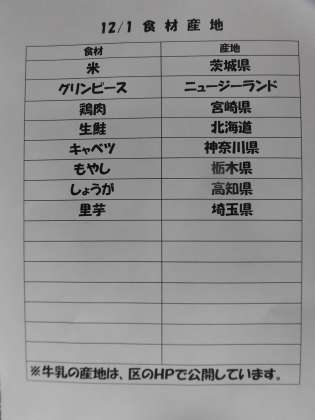 12/1 食材産地
食材 産地
米 茨城県
グリンピース ニュージーランド
鶏肉 宮崎県
生鮭 北海道
キャベツ 神奈川県
もやし 栃木県
しょうが 高知県
里芋 埼玉県
※牛乳の産地は、区のHPで公開しています。